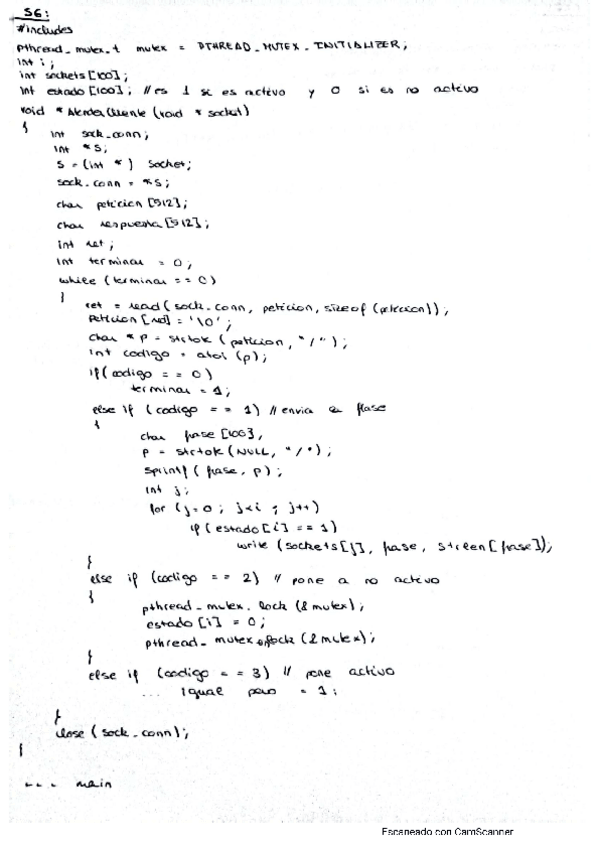 S6:
#includes
pthread_mutex_t mutex = PTHREAD_MUTEX_INITIALIZER;
int i;
int sockets[100];
int estado[100]; // es 1 si es activo y 0 si es no activo
void * AtenderCliente (void * socket)
{
int sock_conn;
int *s;
s = (int *) socket;
sock_conn = *s;
char peticion [512];
char respuesta [512];
int ret;
int terminar = 0;
while (terminar == 0)
{
ret = read (sock_conn, peticion, sizeof (peticion));
peticion [ret] = '\0';
char * p = strtok (peticion, "/");
int codigo = atoi (p);
if (codigo == 0)
terminar = 1;
else if (codigo == 1) // envia frase
{
char frase [100],
p = strtok (NULL, "/");
sprintf (frase, p);
int j;
for (j=0; j<i; j++)
if (estado[i] == 1)
write (sockets[j], frase, strlen[frase]);
}
else if (codigo == 2) // pone a no activo
{
pthread_mutex_lock (&mutex);
estado [i] = 0;
pthread_mutex (&mutex);
}
else if (codigo == 3) // pone activo
... igual pero = 1;
}
close (sock_conn);
}
--- main
Escaneado con CamScanner